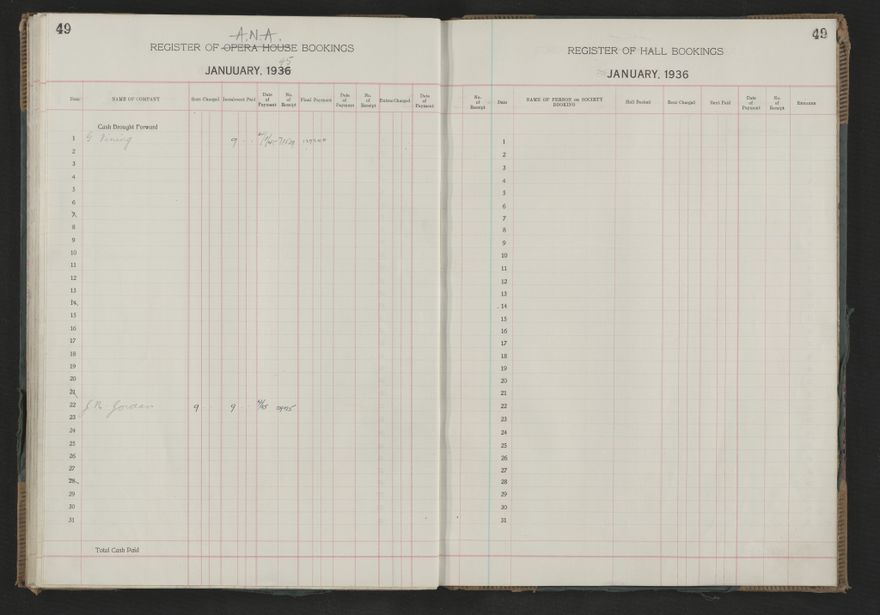 49
A.N.A.
REGISTER OF OPERA HOUSE BOOKINGS
45
JANUUARY, 1936
Date NAME OF COMPANY Rent Charged Instalment Paid Date of Payment No. of Receipt Final Payment Date of Payment No. of Receipt Extras Charged Date of Payment
Cash Brought Forward
1 G. Vining 9
2
3
4
5
6
7
8
9
10
11
12
13
14
15
16
17
18
19
20
21
22 Jordan 9 9
23
24
25
26
27
28
29
30
31
Total Cash Paid
49
REGISTER OF HALL BOOKINGS
JANUARY, 1936
No. of Receipt Date NAME OF PERSON OR SOCIETY BOOKING Hall Booked Rent Charged Rent Paid Date of Payment No. of Receipt REMARKS
1
2
3
4
5
6
7
8
9
10
11
12
13
14
15
16
17
18
19
20
21
22
23
24
25
26
27
28
29
30
31